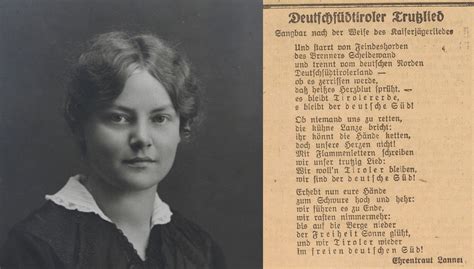 Deutschsüdtiroler Trutzlied
Sangbar nach der Weise des Kaiserjägerliedes
Und starrt von Feindeshorden
des Brenners Scheidewand
und trennt vom deutschen Norden
Deutschsüdtirolerland —
ob es zerrissen werde,
daß heißes Herzblut sprüht, —
es bleibt Tirolererde,
es bleibt der deutsche Süd!
Ob niemand uns zu retten,
die kühne Lanze bricht:
ihr könnt die Hände ketten,
doch unsere Herzen nicht!
Mit Flammenlettern schreiben
wir unser trutzig Lied:
Wir woll'n Tiroler bleiben,
wir sind der deutsche Süd!
Erhebt nun eure Hände
zum Schwure hoch und hehr:
wir führen es zu Ende,
wir rasten nimmermehr:
bis auf die Berge nieder
der Freiheit Sonne glüht,
und wir Tiroler wieder
im freien deutschen Süd!
Ehrentraut Lanner